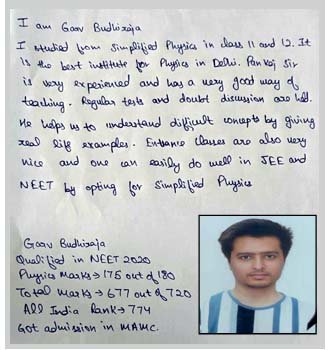 I am Gaav Budhiraja
I studied from Simplified Physics in class 11 and 12. It
is the best institute for Physics in Delhi. Pankaj Sir
is very experienced and has a very good way of
teaching. Regular tests and doubt discussion are held.
He helps us to understand difficult concepts by giving
real life examples. Entrance classes are also very
nice and one can easily do well in JEE and
NEET by opting for Simplified Physics
Gaav Budhiraja
Qualified in NEET 2020
Physics Marks → 175 out of 180
Total Marks → 677 out of 720
All India Rank → 774
Got admission in MAMC.